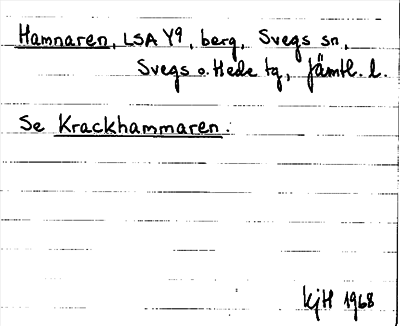 Hamnaren, LSA Y9, berg, Svegs sn,
Svegs o. Hede tg, Jämtl. l.
Se Krackhammaren.
KjH 1968